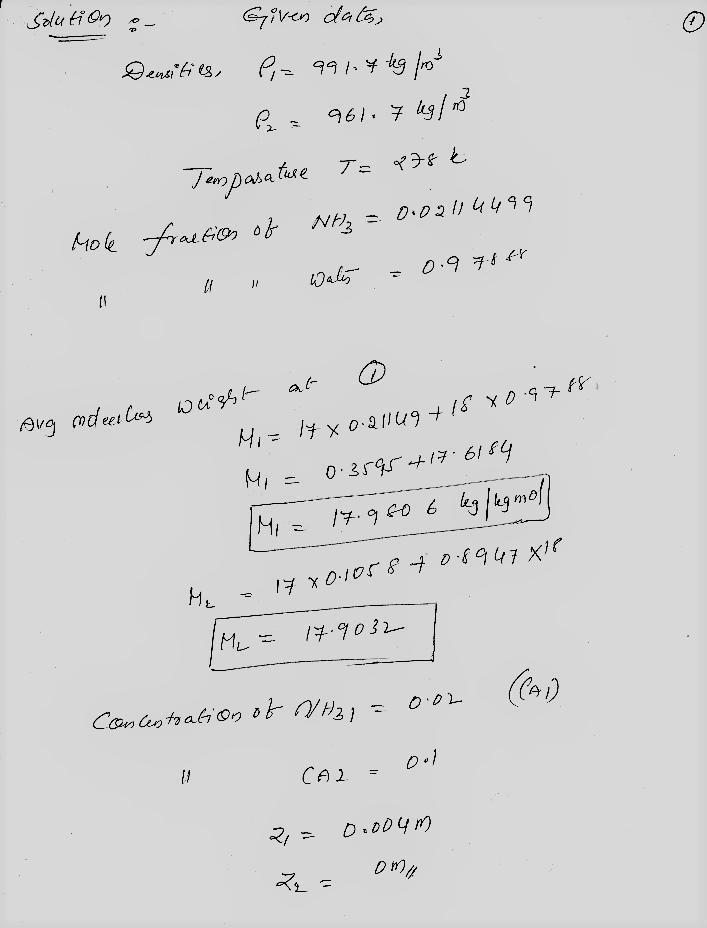 Solution :- Given data, ①
Densities, ρ₁ = 991.7 kg/m³
ρ₂ = 961.7 kg/m³
Temparature T = 278 k
Mole fraction of NH₃ = 0.02114499
〃 〃 〃 Water = 0.97888
Avg molecular weight at ①
M₁ = 17 × 0.21149 + 18 × 0.9788
M₁ = 0.3595 + 17.6184
M₁ = 17.9806 kg/kgmol
M₂ = 17 × 0.1058 + 0.8947 × 18
M₂ = 17.9032
Concentration of NH₃₁ = 0.02 (CA1)
〃 CA2 = 0.1
Z₁ = 0.004 m
Z₂ = 0 m//